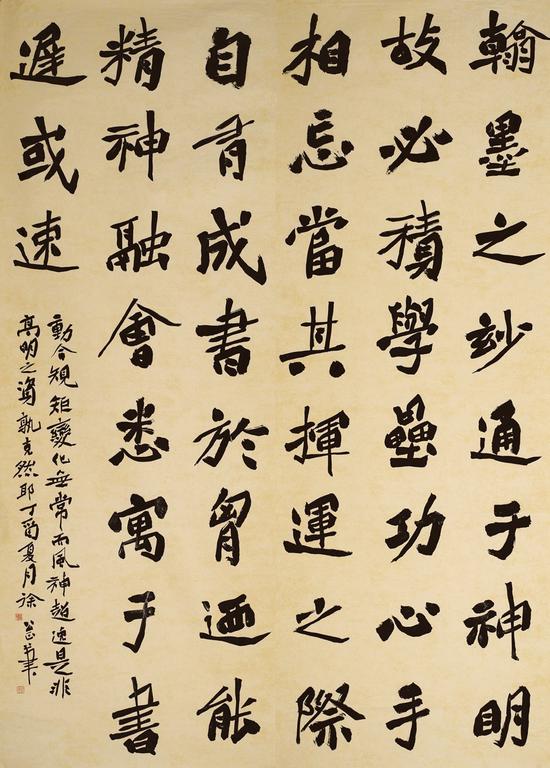 翰墨之妙通于神明
故必積學壘功心手
相忘當其揮運之際
自有成書於胷迺能
精神融會悉寓于書
遲或速
動合規矩變化無常而風神超逸是非
高明之資孰克然耶丁酉夏月徐書